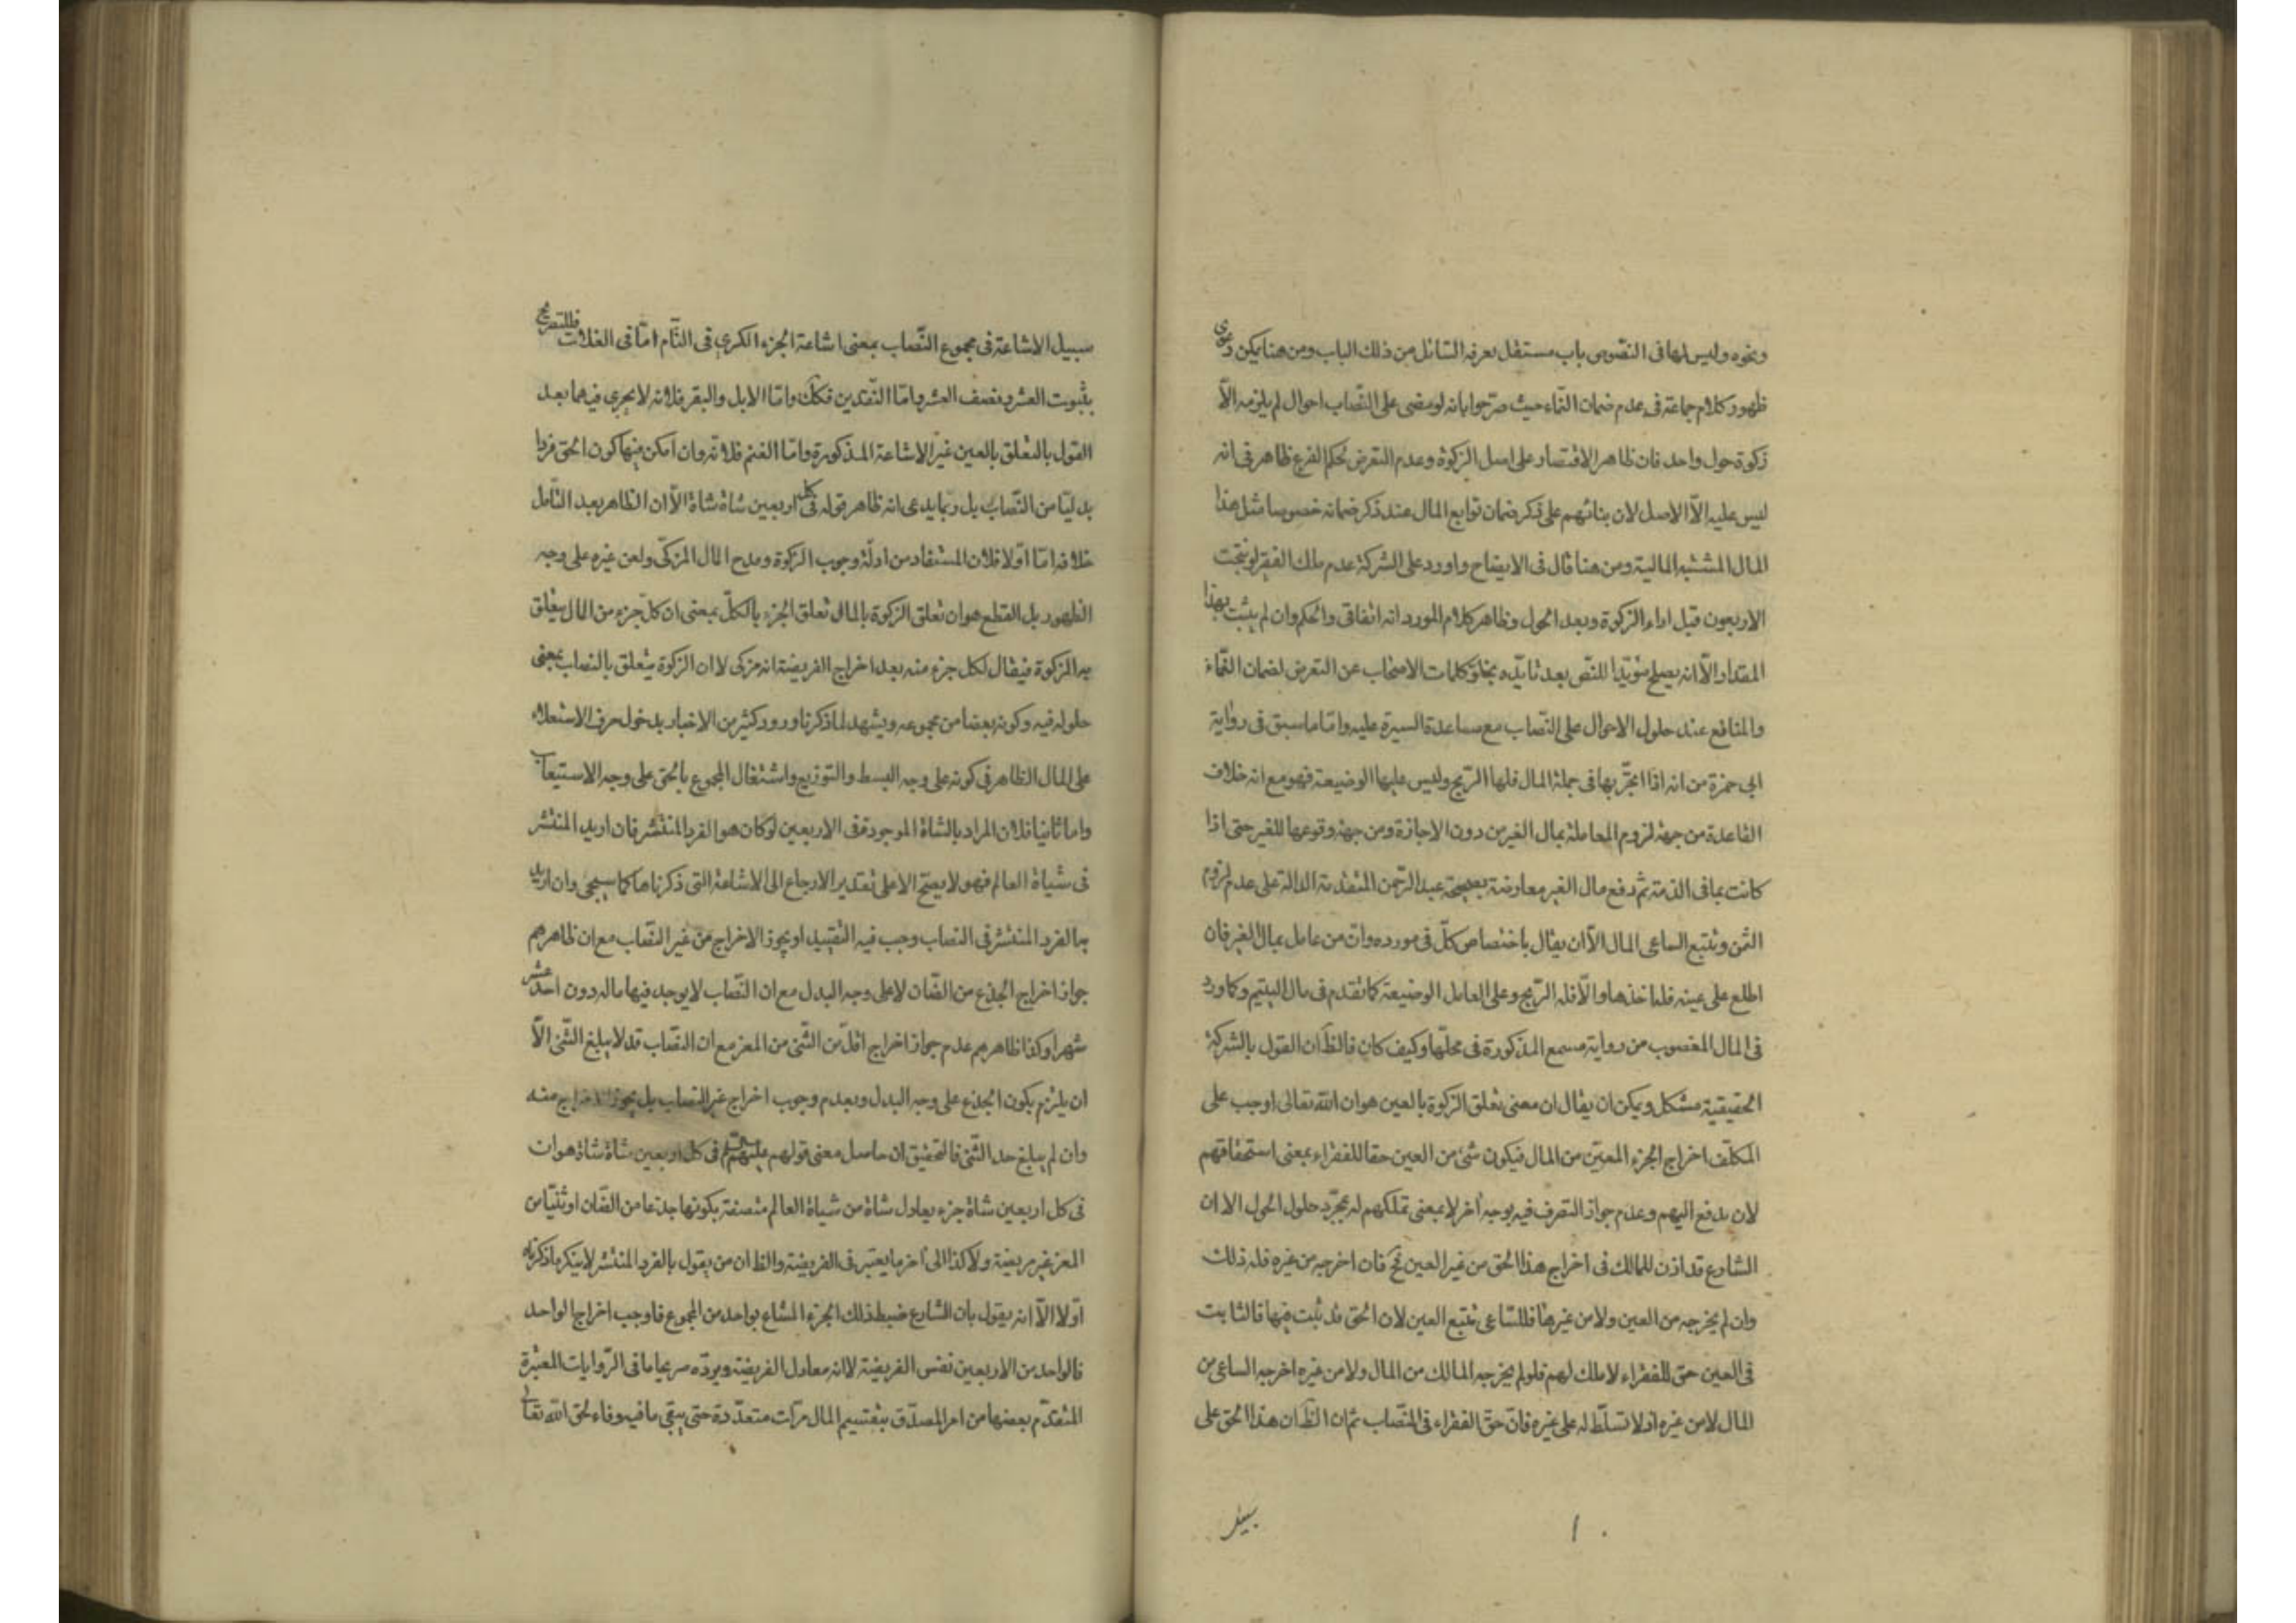 ونحوه وليس لها فى النصوص باب مستقل يعرفه السائل من ذلك الباب ومن هنا يمكن دعوى
ظهور كلام جماعة فى عدم ضمان النماء حيث صرّحوا بانه لو مضى على النصاب احوال لم يلزمه الّا
زكوة حول واحد فان ظاهر الاقتصار على اصل الزكوة وعدم التعرض لحكم الفرع ظاهر فى انه
ليس عليه الّا الاصل لان بنائهم على ذكر ضمان توابع المال عند ذكر ضمانه خصوصا مثل هذا
المال المشتبه المالية ومن هنا قال فى الايضاح واورد على الشركة عدم ملك الفقير لو نتجت
الاربعون قبل اداء الزكوة وبعد الحول وظاهر كلام المورد انه اتفاقى والحكم وان لم يثبت بهذا
المقدار الّا انه يصلح مؤيّدا للنصّ بعد تأيّده بخلوّ كلمات الاصحاب عن التعرض لضمان النماء
والمنافع عند حلول الاحوال على النصاب مع مساعدة السيرة عليه وامّا ما سبق فى رواية
ابى حمزة من انه اذا اتجّر بها فى جملة المال فلها الرّبح وليس عليها الوضيعة فهو مع انه خلاف
القاعدة من جهة لزوم المعاملة بمال الغير من دون الاجازة ومن جهة وقوعها للغير حتى اذا
كانت بما فى الذمة ثم دفع مال الغير معارضة بصحيحة عبد الرّحمن المتقدمة الدالة على عدم لزوم
الثمن وتتبع الساعى المال الّا ان يقال باختصاص كلّ فى مورده وانّ من عامل بمال الغير فان
اطلع على عينه فلنا خذها والّا فله الرّبح وعلى العامل الوضيعة كما تقدم فى مال اليتيم وكما ورد
فى المال المغصوب من رواية مسمع المذكورة فى محلّها وكيف كان فالظّ ان القول بالشركة
الحقيقية مشكل ويمكن ان يقال ان معنى تعلق الزكوة بالعين هو ان الله تعالى اوجب على
المكلّف اخراج الجزء المعيّن من المال فيكون شئ من العين حقا للفقراء بمعنى استحقاقهم
لان يدفع اليهم وعدم جواز التصرف فيه بوجه آخر لا بمعنى تملكهم له بمجرّد حلول الحول الا ان
الشارع قد اذن للمالك فى اخراج هذا الحق من غير العين فح فان اخرجه من غيره فله ذلك
وان لم يخرجه من العين ولا من غيرها فللسّاعى تتبع العين لان الحق قد ثبت فيها فالثابت
فى العين حق للفقراء لا ملك لهم فلو لم يخرجه المالك من المال ولا من غيره اخرجه الساعى من
المال لا من غيره اذ لا تسلّط له على غيره فانّ حقّ الفقراء فى النصّاب ثم ان الظّ ان هذا الحق على
سبيل
سبيل الاشاعة فى مجموع النّصاب بمعنى اشاعة الجزء الكسرى فى التّام امّا فى الغلات فللتصريح
بثبوت العشر ونصف العشر وامّا النّقدين فكك وامّا الابل والبقر فلانه لا يجرى فيهما بعد
القول بالتعلق بالعين غير الاشاعة المذكورة وامّا الغنم فلانّه وان امكن فيها كون الحق فردا
بدليّا من النّصاب بل ربما يدعى انه ظاهر قوله فى كل اربعين شاة شاة الّا ان الظاهر بعد التّأمل
خلافه امّا اوّلا فلان المستفاد من ادلّة وجوب الزكوة ومدح المال المزكّى ولعن غيره على وجه
الظهور بل القطع هو ان تعلق الزكوة بالمال تعلق الجزء بالكلّ بمعنى ان كلّ جزء من المال يتعلق
به الزكوة فيقال لكل جزء منه بعد اخراج الفريضة انه مزكى لا ان الزكوة يتعلق بالنصاب بمعنى
حلوله فيه وكونه بعضا من مجموعه ويشهد لما ذكرنا ورود كثير من الاخبار بدخول حرف الاستعلاء
على المال الظاهر فى كونه على وجه البسط والتوزيع واشتغال المجموع بالحق على وجه الاستيعاب
واما ثانيا فلان المراد بالشاة الموجودة فى الاربعين لو كان هو الفرد المنتشر فان اريد المنتشر
فى شياة العالم فهو لا يصحّ الا على تقدير الارجاع الى الاشاعة التى ذكرناها كما سيجئ وان اريد
بها الفرد المنتشر فى النصاب وجب فيه التقييد او يجوز الاخراج من غير النصّاب مع ان ظاهرهم
جواز اخراج الجذع من الضّان لا على وجه البدل مع ان النّصاب لا يوجد فيها ما له دون احد عشر
شهرا وكذا ظاهرهم عدم جواز اخراج اقلّ من الثّنى من المعز مع ان النصّاب قد لا يبلغ الثّنى الّا
ان يلتزم بكون الجذع على وجه البدل وبعدم وجوب اخراج غير النصاب بل يجوز الاخراج منه
وان لم يبلغ حد الثّنى فالتحقيق ان حاصل معنى قولهم عليهم السلام فى كل اربعين شاة شاة هو ان
فى كل اربعين شاة جزء يعادل شاة من شياة العالم متصفة بكونها جذعا من الضّان او ثنيّا من
المعز غير مريضة ولا كذا الى آخر ما يعتبر فى الفريضة والظ ان من يقول بالفرد المنتشر لا ينكر ما ذكرناه
اوّلا الّا انه يقول بان الشارع ضبط ذلك الجزء المشاع بواحد من المجموع فاوجب اخراج الواحد
فالواحد من الاربعين نفس الفريضة لا انه معادل الفريضة ويردّه صريحا ما فى الرّوايات المعتبرة
المتقدّم بعضها من امر المصدّق بتقسيم المال مرّات متعدّدة حتى يبقى ما فيه وفاء لحق الله تعالى